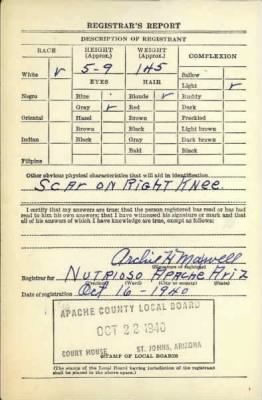 REGISTRAR'S REPORT
DESCRIPTION OF REGISTRANT
RACE HEIGHT (Approx.) WEIGHT (Approx.) COMPLEXION
White ✓ 5-9 145 Sallow
EYES HAIR Light ✓
Negro Blue Blonde ✓ Ruddy
Gray ✓ Red Dark
Oriental Hazel Brown Freckled
Brown Black Light brown
Indian Black Gray Dark brown
Bald Black
Filipino
Other obvious physical characteristics that will aid in identification
Scar on Right Knee
I certify that my answers are true; that the person registered has read or has had
read to him his own answers; that I have witnessed his signature or mark and that
all of his answers of which I have knowledge are true, except as follows:
Archie H Maxwell
(Signature of registrar)
Registrar for Nutrioso Apache Ariz
(Precinct) (Ward) (City or county) (State)
Date of registration Oct 16-1940
APACHE COUNTY LOCAL BOARD
OCT 22 1940
COURT HOUSE ST. JOHNS, ARIZONA
(STAMP OF LOCAL BOARD)
(The stamp of the Local Board having jurisdiction of the registrant
shall be placed in the above space.)